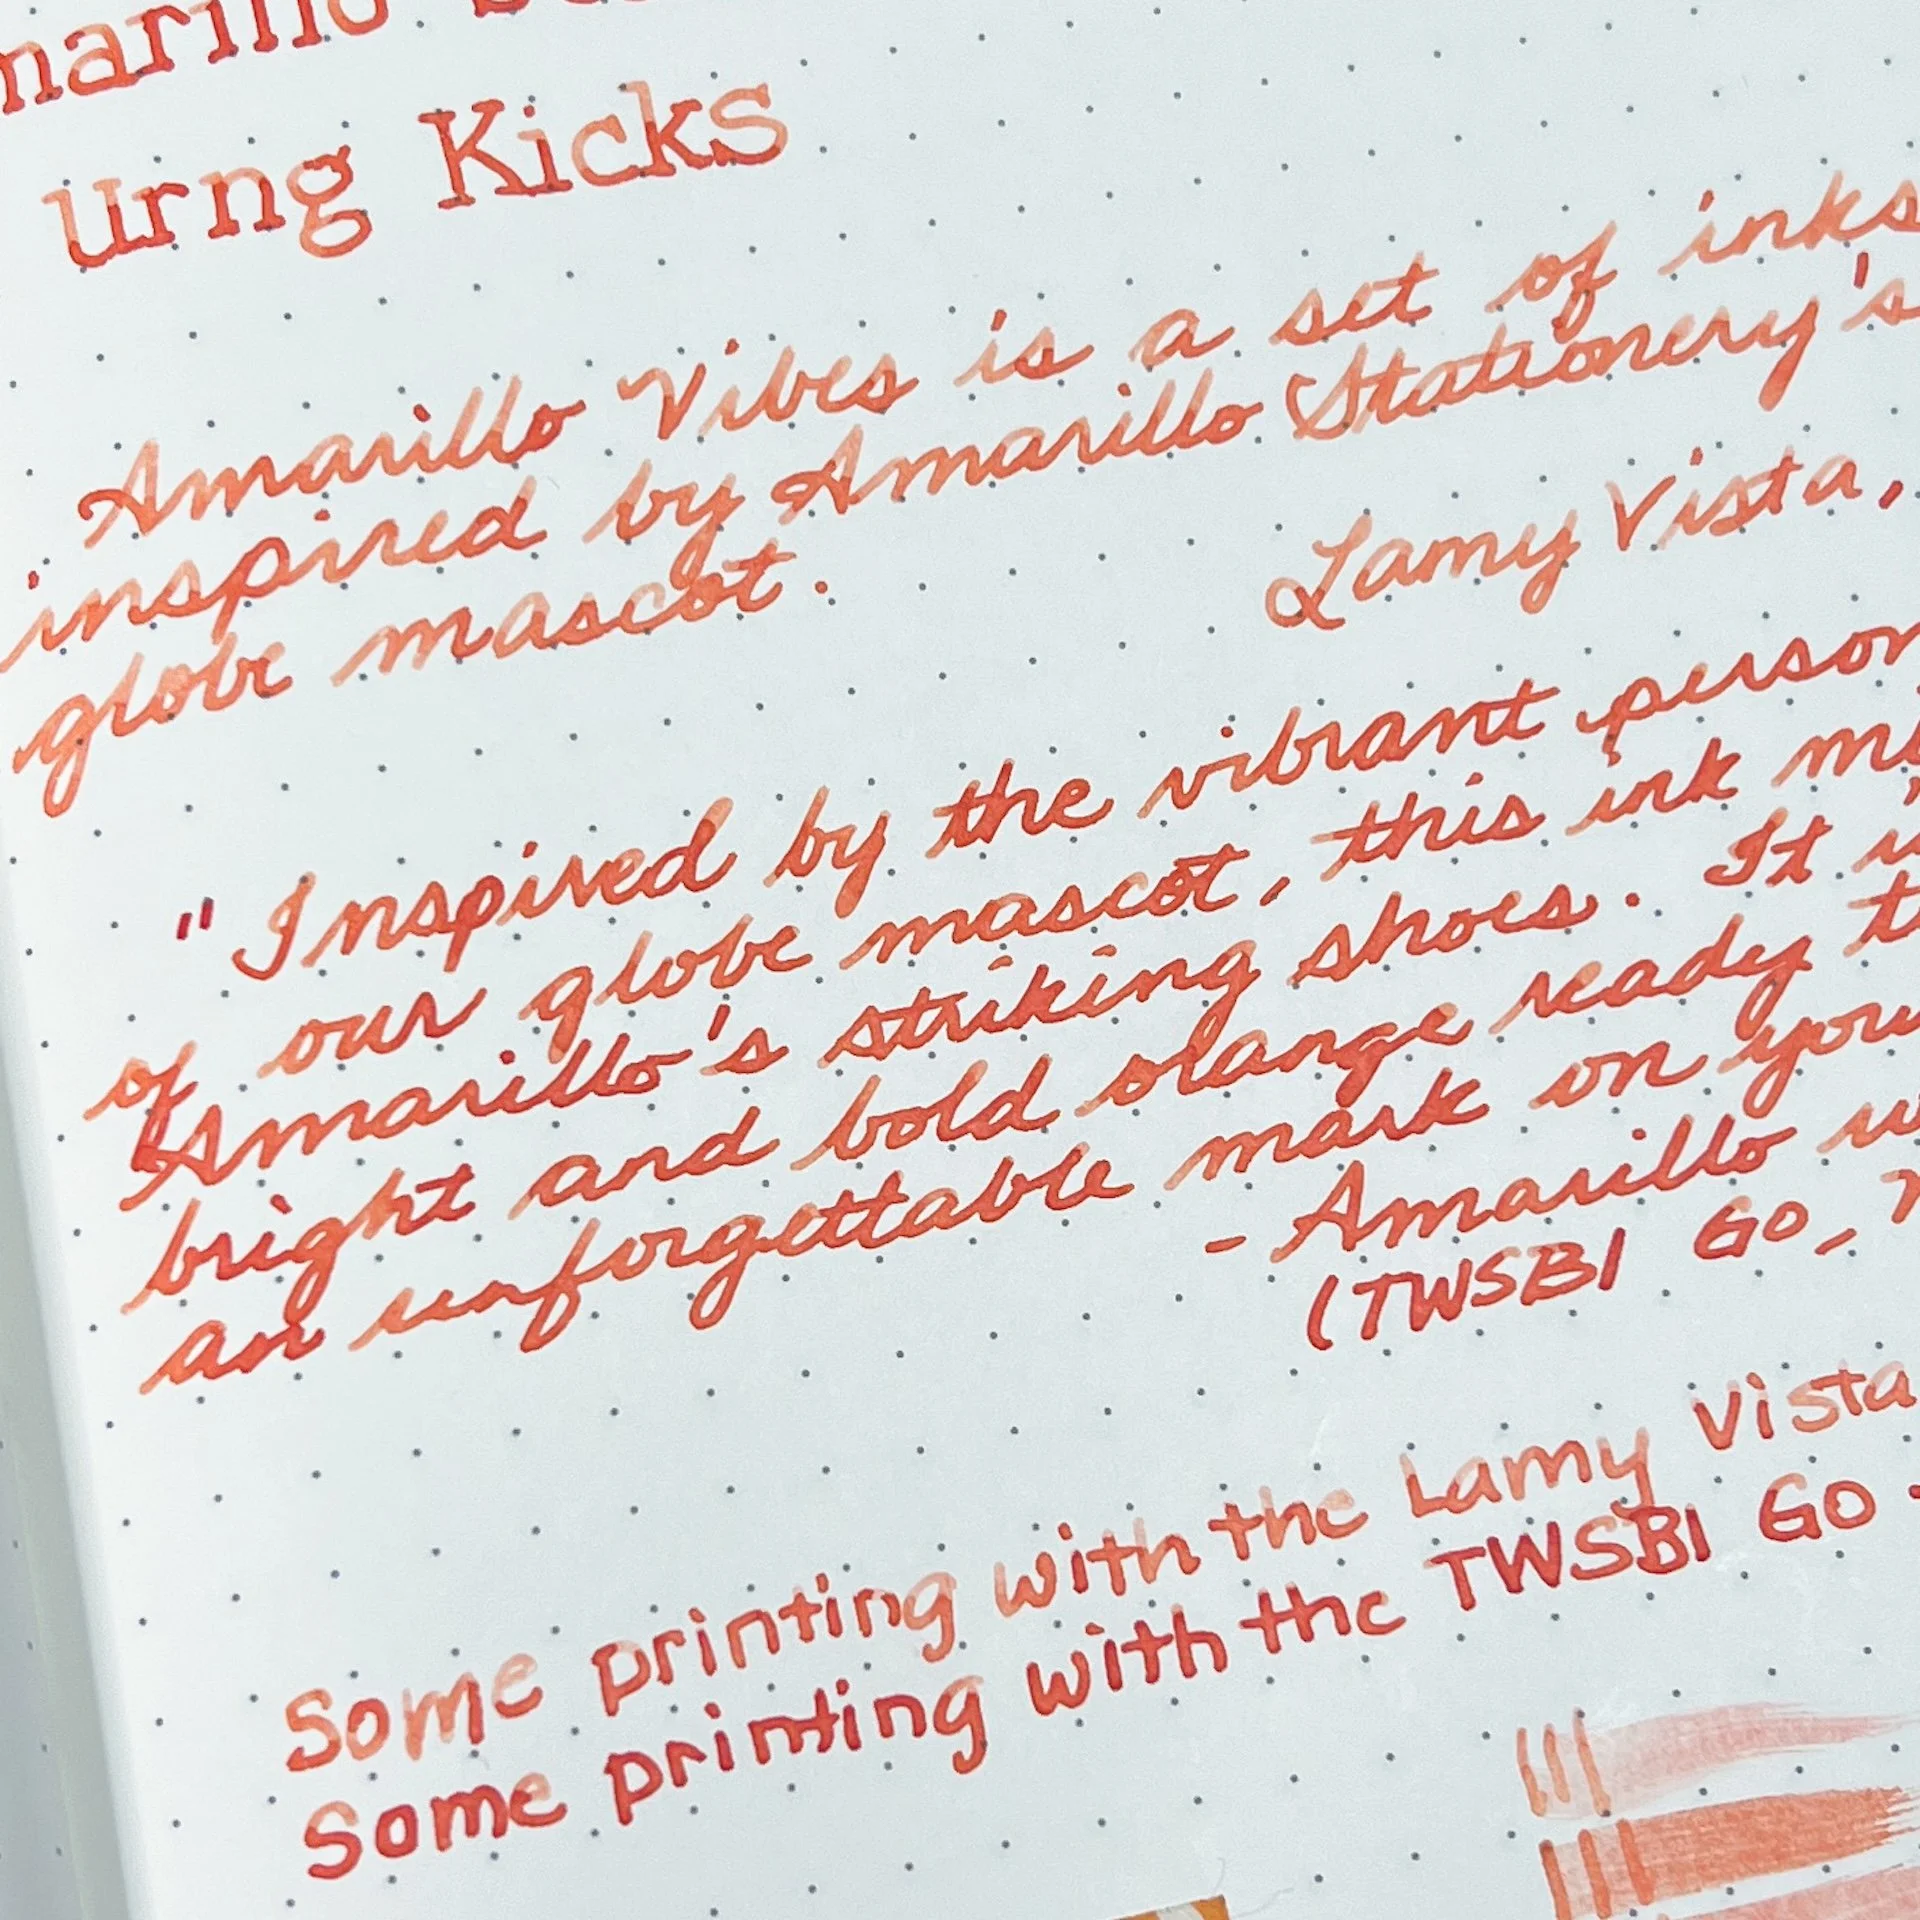 marillo
urng Kicks
Amarillo Vibes is a set of inks
inspired by Amarillo Stationery's
globe mascot.
Lamy Vista,
"Inspired by the vibrant person
of our globe mascot, this ink mi
Amarillo's striking shoes. It i
bright and bold olange ready t
an unforgettable mark on you
- Amarillo w
(TWSBI GO,
Some printing with the Lamy Vista
Some printing with the TWSBI GO